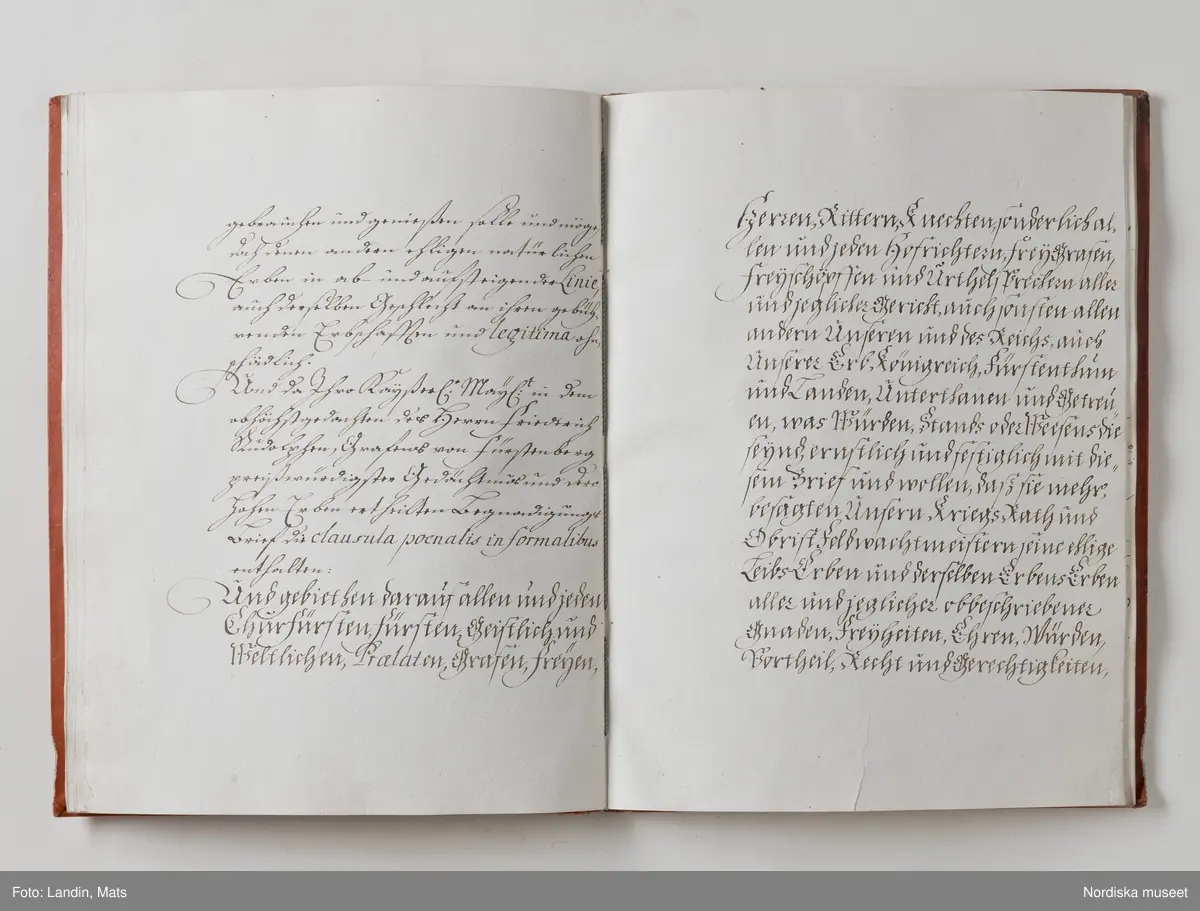 gebrauchen und genießen solle und möge,
doch denen andern ehligen natürlichen
Erben in ab- und aufsteigender Linie,
auch derselben Geschlecht an ihren gebüh-
renden Erbschafften und legitima ohn-
schädlich.
Und da Ihro Kayßerl. Mayt. in dem
obhöchstgedachten des Herrn Friedrich
Rudolphen, Grafens von Fürstenberg
preißwürdigster Gedächtnus und dero
hohen Erben ertheilten Begnadigungs
Brief die clausula poenalis in formalibus
enthalten:
Und gebiethen darauf allen und jeden
Churfürsten, Fürsten, Geistlich und
Weltlichen, Prælaten, Grafen, Freyen,
Herren, Rittern, Knechten, sonderlich al-
len und jeden Hofrichtern, FreyGrafen,
Freyschöpffen und Urthelsprechern aller
und jeglicher Gericht, auch sonsten allen
andern Unseren und des Reichs, auch
Unserer Erb-Königreich, Fürstenthum
und Landen, Unterthanen und Getreu-
en, was Würden, Stands oder Weesens die
seynd, ernstlich und festiglich mit die-
sem Brief und wollen, daß sie mehr-
besagten Unsern Kriegs Rath und
Obrist Feldwachtmeistern seine ehlige
Leibs Erben und derselben Erbens Erben
aller und jeglicher obbeschriebener
Gnaden, Freyheiten, Ehren, Würden,
Vortheil, Recht und Gerechtigkeiten,
Foto: Landin, Mats
Nordiska museet